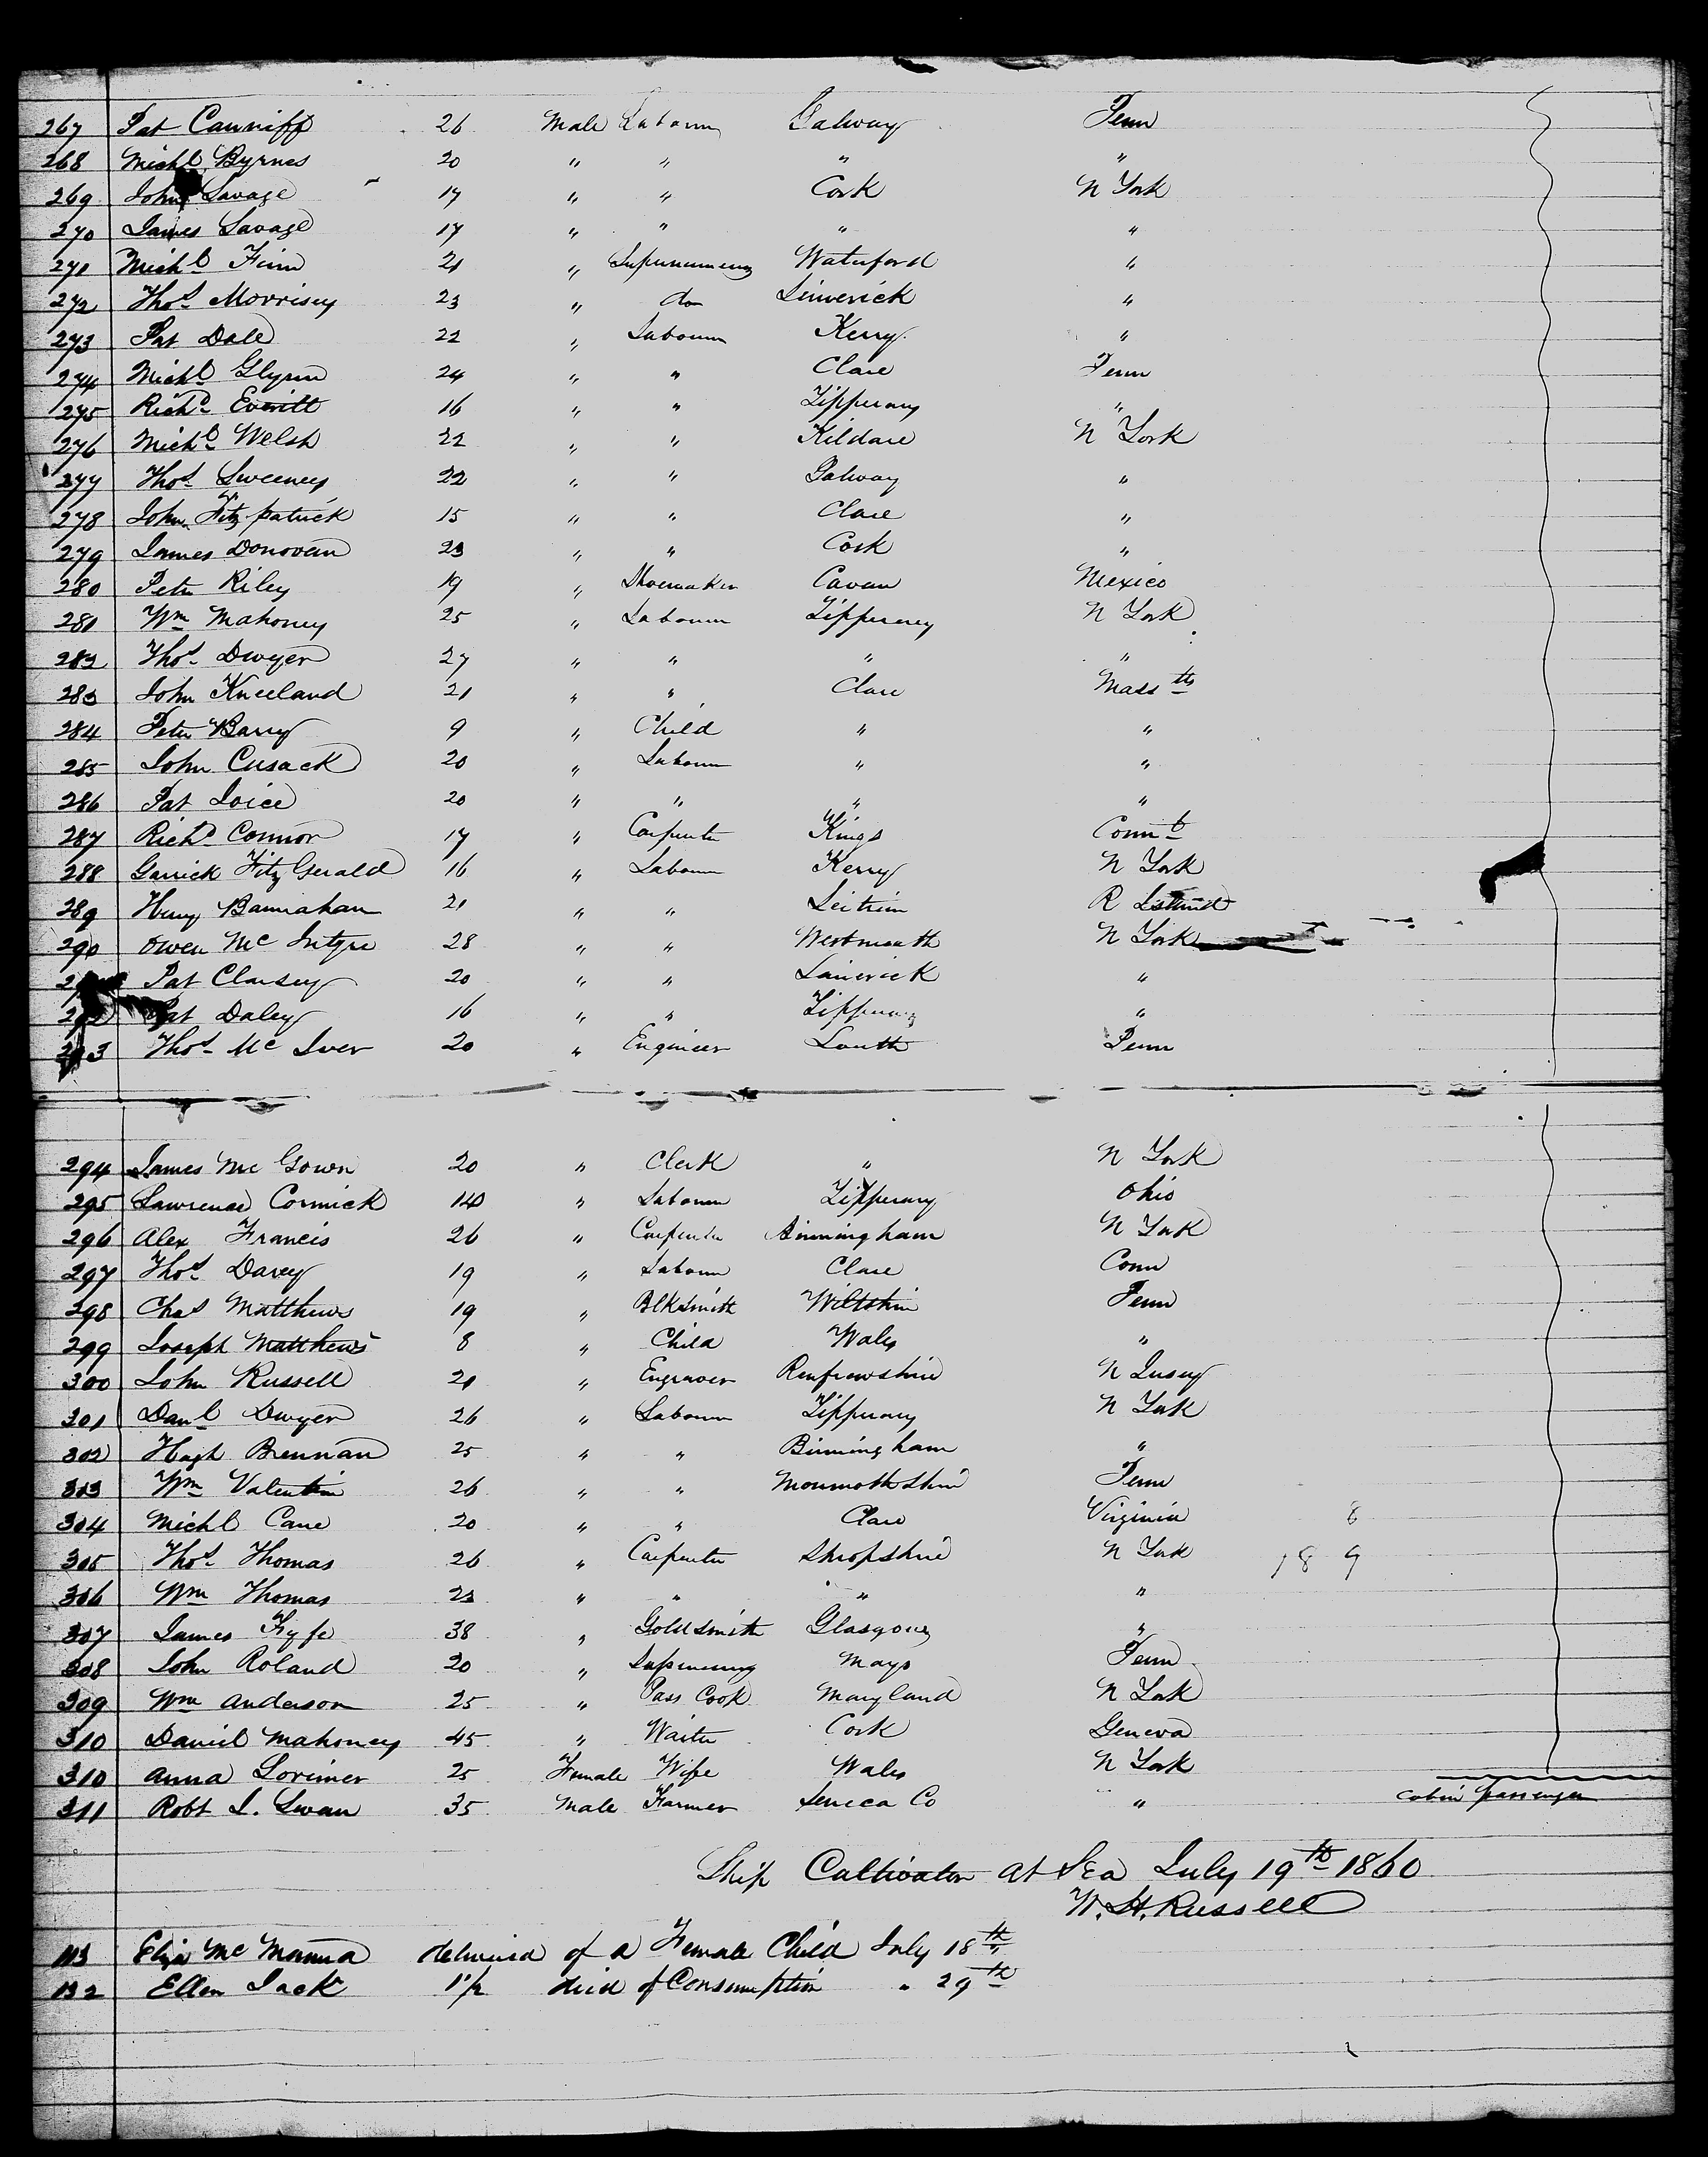 267 Pat Canniff 26 Male Labourer Galway Penn
268 Michl Byrnes 20 " " " "
269 John Savage 17 " " Cork N York
270 James Savage 17 " " " "
271 Michl Finn 21 " Supernumery Waterford "
272 Thos Morrisey 23 " do Limerick "
273 Pat Dale 22 " Labourer Kerry "
274 Michl Glynn 24 " " Clare Penn
275 Richd Everitt 16 " " Tipperary "
276 Michl Welsh 22 " " Kildare N York
277 Thos Sweeney 22 " " Galway "
278 John Fitzpatrick 15 " " Clare "
279 James Donovan 23 " " Cork "
280 Peter Riley 19 " Shoemaker Cavan Mexico
281 Wm Mahoney 25 " Labourer Tipperary N York
282 Thos Dwyer 27 " " " "
283 John Kneeland 21 " " Clare Massts
284 Peter Barry 9 " Child " "
285 John Cusack 20 " Labourer " "
286 Pat Joice 20 " " " "
287 Richd Connor 17 " Carpenter Kings Connt
288 Garrick Fitz Gerald 16 " Labourer Kerry N York
289 Henry Bannahan 21 " " Leitrim R Island
290 Owen Mc Intyre 28 " " Westmeath N York
Pat Clansey 20 " " Limerick "
292 Pat Daley 16 " " Tipperary "
293 Thos Mc Iver 20 " Engineer Louth Penn
294 James Mc Gown 20 " Clerk " N York
295 Lawrence Cormick 40 " Labourer Tipperary Ohio
296 Alex Francis 26 " Carpenter Birmingham N York
297 Thos Davey 19 " Labourer Clare Conn
298 Chas Matthews 19 " Blksmith Wiltshire Penn
299 Joseph Matthews 8 " Child Wales "
300 John Russell 21 " Engraver Renfrewshire N Jersey
301 Danl Dwyer 26 " Labourer Tipperary N York
302 Hugh Brennan 25 " " Birmingham "
303 Wm Valentin 26 " " Monmothshire Penn
304 Michl Cane 20 " " Clare Virginia 8
305 Thos Thomas 26 " Carpenter Shropshire N York 18 9
306 Wm Thomas 23 " " " "
307 James Fyfe 38 " Goldsmith Glasgow "
308 John Roland 20 " Mayo Penn
309 Wm Anderson 25 " Pass Cook Maryland N York
310 Daniel Mahoney 45 " Waiter Cork Geneva
310 Anna Lorimer 25 Female Wife Wales N York
311 Robt J. Swan 35 Male Farmer Seneca Co " cabin passenger
Ship Cultivator at Sea July 19th 1860
W. H. Russell
113 Eliza Mc Manna delivered of a Female Child July 18th
132 Ellen Jack 1 1/2 died of Consumption " 29th